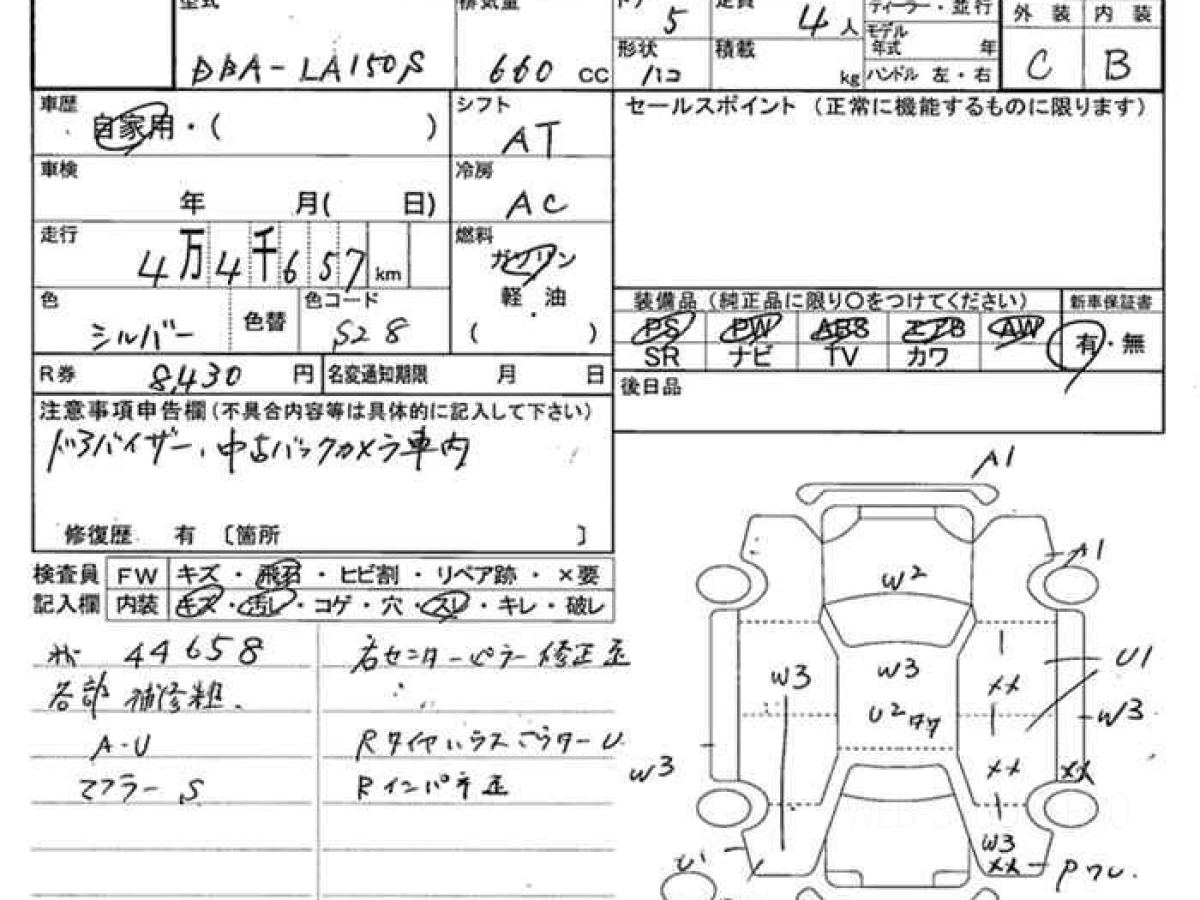 型式 DBA-LA150S
排気量 660 cc
ドア 5
定員 4人
ディーラー・並行
モデル年式 年
外装 内装
C B
形状 ハコ
積載 kg
ハンドル 左・右
車歴 自家用・( )
シフト AT
セールスポイント (正常に機能するものに限ります)
車検 年 月( 日)
冷房 AC
走行 4万4千657 km
燃料 ガソリン
軽油
( )
色 シルバー 色替 色コード S28
装備品 (純正品に限り○をつけてください) 新車保証書
PS PW ABS エアB AW 有・無
SR ナビ TV カワ
R券 8,430 円 名変通知期限 月 日
後日品
注意事項申告欄(不具合内容等は具体的に記入して下さい)
ドアバイザー、中古バックカメラ車内
修復歴 有 〔箇所 〕
検査員 FW キズ・飛石・ヒビ割・リペア跡・×要
記入欄 内装 キズ・汚レ・コゲ・穴・スレ・キレ・破レ
44658
各部 補修粗.
A-U
マフラー S
右センターピラー 修正歪
Rタイヤハウスこうター U
Rインパネ歪
A1
A1
W2
W3
W3
U2
U1
W3
XX
XX
XX
W3
W3
XX
U1